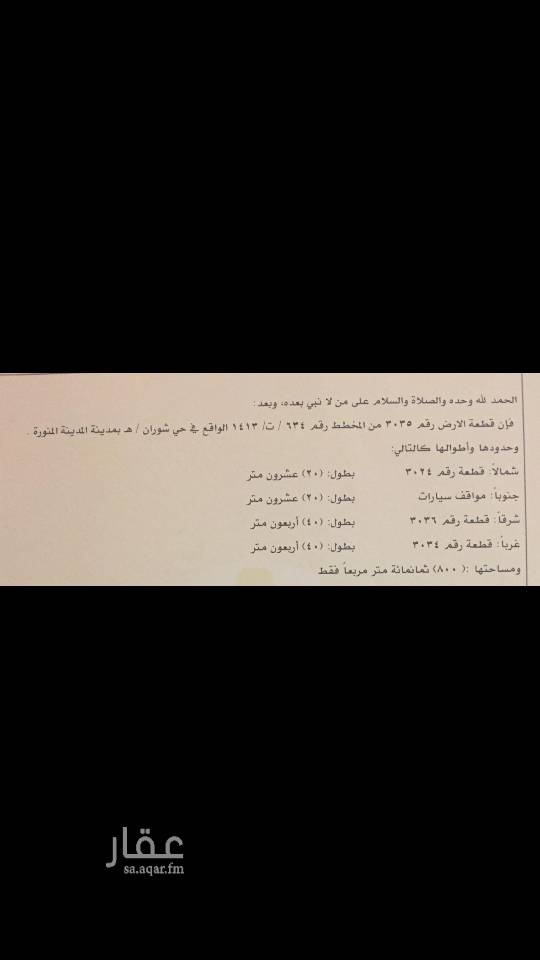 الحمد لله وحده والصلاة والسلام على من لا نبي بعده، وبعد:
فإن قطعة الارض رقم ٣٠٣٥ من المخطط رقم ٦٣٤ / ت/ ١٤١٣ الواقع في حي شوران / هـ بمدينة المدينة المنورة .
وحدودها وأطوالها كالتالي:
شمالاً: قطعة رقم ٣٠٢٤ بطول: (٢٠) عشرون متر
جنوباً: مواقف سيارات بطول: (٢٠) عشرون متر
شرقاً: قطعة رقم ٣٠٣٦ بطول: (٤٠) أربعون متر
غرباً: قطعة رقم ٣٠٣٤ بطول: (٤٠) أربعون متر
ومساحتها :( ٨٠٠) ثمانمائة متر مربعاً فقط
عقار
sa.aqar.fm